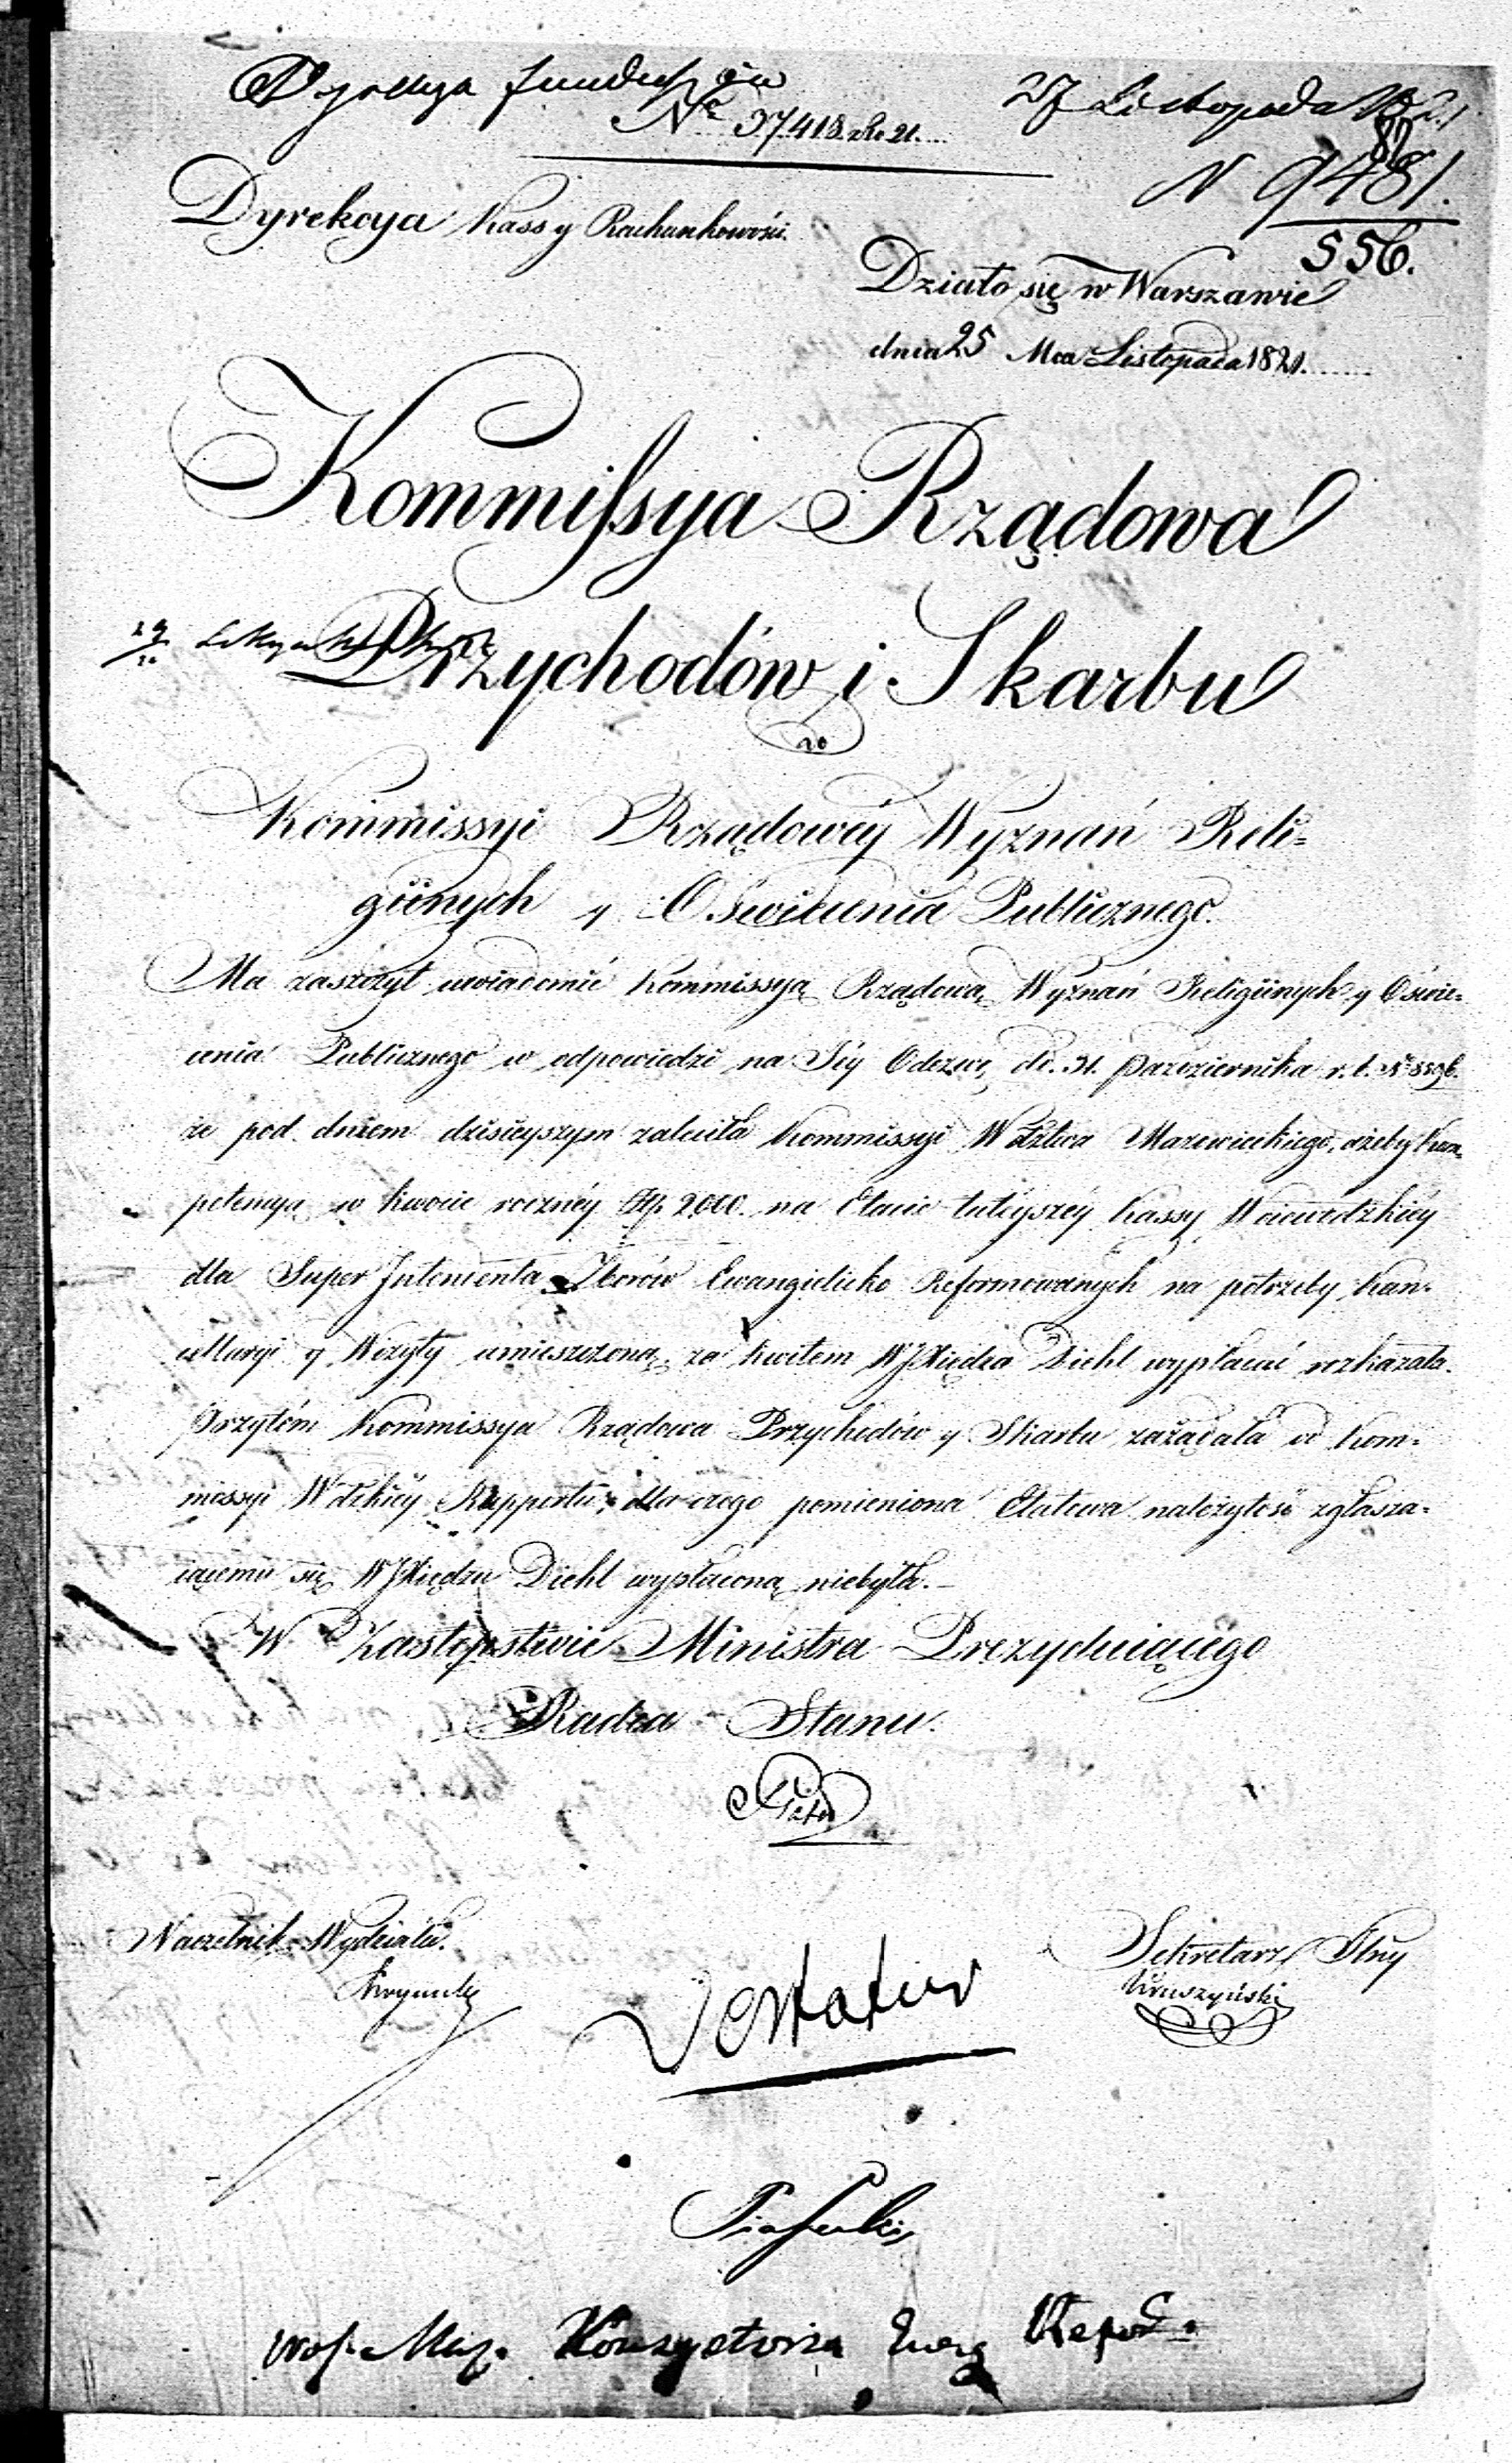 Dyrekcya funduszów
27 Listopada 1821
Nro 37418 zRo 21.
N 9481.
556.
Dyrekcya Kass y Rachunkowości.
Działo się w Warszawie
dnia 25 Mca Listopada 1821.
Kommissya Rządowa
Przychodów i Skarbu
do
Kommissyi Rządowéy Wyznań Reli=
giinych y Oświecenia Publicznego.
Ma zaszczyt uwiadomić Kommissyą Rządową Wyznań Religiinych y Oświe=
cenia Publicznego w odpowiedzi na Jéy Odezwę dt. 31. Pazdziernika r. b. No 8896.
że pod dniem dzisieyszym zaleciła Kommissyi Wdztwa Mazowieckiego, ażeby Kom=
petencyą w kwocie rocznéy Złp. 2000. na Etacie tutéyszéy Kassy Woiewódzkiéy
dla Super Intendenta Zborów Ewangielicko Reformowanych na potrzeby Kan=
cellaryi y Wizyty umieszczoną, za kwitem WJXiędza Diehl wypłacać rozkazała.
Przytém Kommissya Rządowa Przychodów y Skarbu zażądała od Kom=
missyi Wdzkiéy Rapportu, dla czego pomieniona Etatowa należytość zgłasza=
iącemu się WJXiędzu Diehl wypłaconą niebyła.
W Zastępstwie Ministra Prezyduiącego
Radca Stanu.
Naczelnik Wydziału.
Sekretarz Jlny
Kruszyński
Vertatur
Konsystorza Ewang Refor.